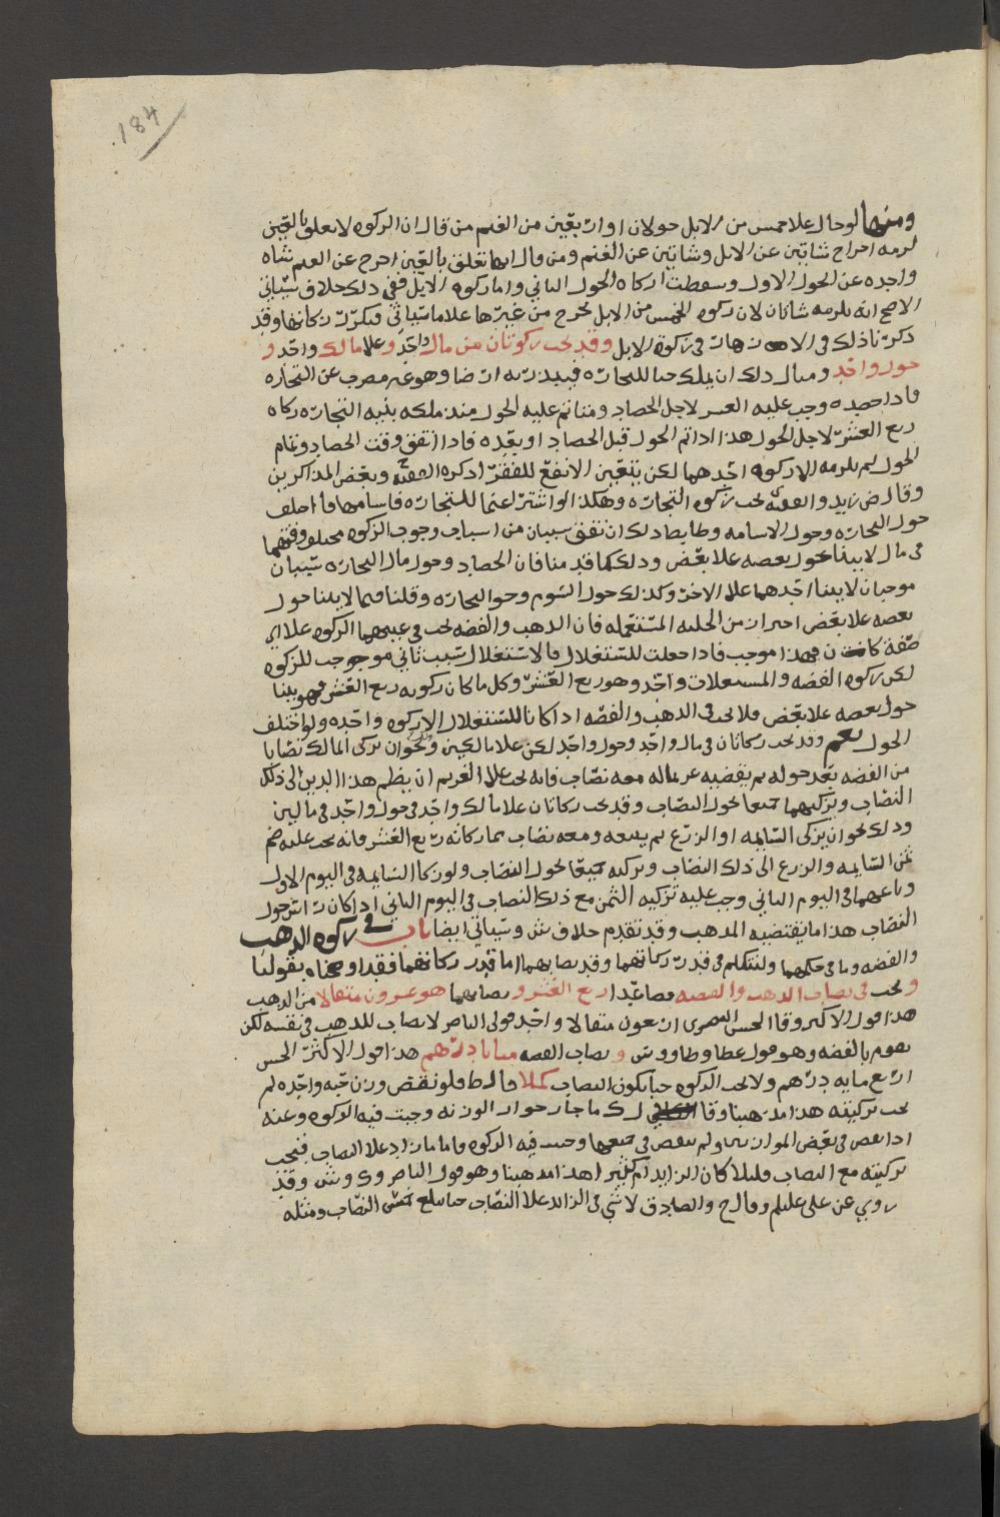 184
ومنها لو حال علا خمس من الابل حولان او اربعين من الغنم من قال ان الزكوه لا تعلق بالعين
لزمه اخراج شاتين عن الابل وشاتين عن الغنم ومن قال انها تعلق بالعين اخرج عن الغنم شاه
واحده عن الحول الاول وسقطت زكاه الحول الثاني واما زكوه الابل ففي ذلك خلاف سياتي
الاصح انه يلزمه شاتان لان زكوه الخمس من الابل تخرج من غيرها علا ما سياتي فتكررت زكاتها وقد
ذكرنا ذلك في الازهار في زكوه الابل وقد تجب زكوتان من مال واحد وعلا مالك واحد و
حول واحد ومثال ذلك ان يملك حبا للتجاره فيبذر به ارضا وهو غير مضرب عن التجاره
فاذا حصده وجب عليه العشر لاجل الحصاد ومتا تم عليه الحول منذ ملكه بنيه التجاره زكاه
ربع العشر لاجل الحول هذا اذا تم الحول قبل الحصاد او بعده فاذا اتفق وقت الحصاد وتمام
الحول لم يلزمه الا زكوه احدهما لكن يتعين الانفع للفقرا ذكره الفقيه وبعض المذاكرين
وقال ض زيد والفقيه تجب زكوه التجاره وهكذا لو اشترا غنما للتجاره فاسامها فاختلف
حول التجاره وحول الاسامه وضابط ذلك ان تتفق سببان من اسباب وجوب الزكوه مختلف وقتهما
في مال لا يبنا حول بعضه علا بعض وذلك كما قد مثا فان الحصاد وحول مال التجاره سببان
موجبان لا يبنا احدهما علا الاخر وكذلك حول السوم وحول التجاره وقلنا فيما لا يبنا حول
بعضه علا بعض احتراز من الحليه المستعمله فان الذهب والفضه تجب في عينهما الزكوه علا اي
صفه كانت فهذا موجب فاذا جعلت للاستغلال فالاستغلال سبب ثاني موجب للزكوه
لكن زكوه الفضه والمستغلات واحد وهو ربع العشر وكل ما كان زكوته ربع العشر فهو يبنا
حول بعضه علا بعض فلا تجب في الذهب والفضه اذا كانا للاستغلال الا زكوه واحده ولو اختلف
الحول نعم وقد تجب زكاتان في مال واحد وحول واحد لكن علا مالكين ونحو ان يزكي المالك نصابا
من الفضه بعد حوله ثم يقضيه غريما له معه نصاب فانه يجب علا الغريم ان يضم هذا الدين الى ذلك
النصاب ويزكيهما جميعا لحول النصاب وقد تجب زكاتان علا مالك واحد في حول واحد في مالين
وذلك نحو ان يزكي السايمه او الزرع ثم يبيعه ومعه نصاب مما زكاته ربع العشر فانه يجب عليه ضم
ثمن السايمه والزرع الى ذلك النصاب وتزكيه جميعا لحول النصاب ولو زكا السايمه في اليوم الاول
وباعها في اليوم الثاني وجب عليه تزكيه الثمن مع ذلك النصاب في اليوم الثاني اذا كان راس حول
النصاب هذا ما يقتضيه المذهب وقد تقدم خلاف ش وسياتي ايضا باب في زكوه الذهب
والفضه وما في حكمهما ولنتكلم في قدر زكاتهما وقدر نصابهما اما قدر زكاتهما فقد اوضحناه بقولنا
وتجب في نصاب الذهب والفضه فصاعدا ربع العشر ونصابهما هو عشرون مثقالا من الذهب
هذا قول الاكثر وقال الحسن البصري اربعون مثقالا واحد قولي الناصر لا نصاب للذهب في نفسه لكن
يقوم بالفضه وهو قول عطا وطاووس و نصاب الفضه مايتا درهم هذا قول الاكثر الحسن
اربع مايه درهم ولا تجب الزكوه حتا يكون النصاب كملا قال ط فلو نقص وزن حبه واحده لم
تجب تزكيته هذا مذهبنا وقال ك ما جاز جواز الوزنه وجبت فيه الزكوه وعنه
اذا نقص في بعض الموازين ولم ينقص في جميعها وجبت فيه الزكوه واما ما زاد علا النصاب فتجب
تزكيته مع النصاب قليلا كان الزايد ام كثيرا هذا مذهبنا وهو قول الناصر وك وش وقد
روي عن علي عليلم وقال ح والصادق لا شي في الزايد علا النصاب حتا يبلغ خمس النصاب ومثله